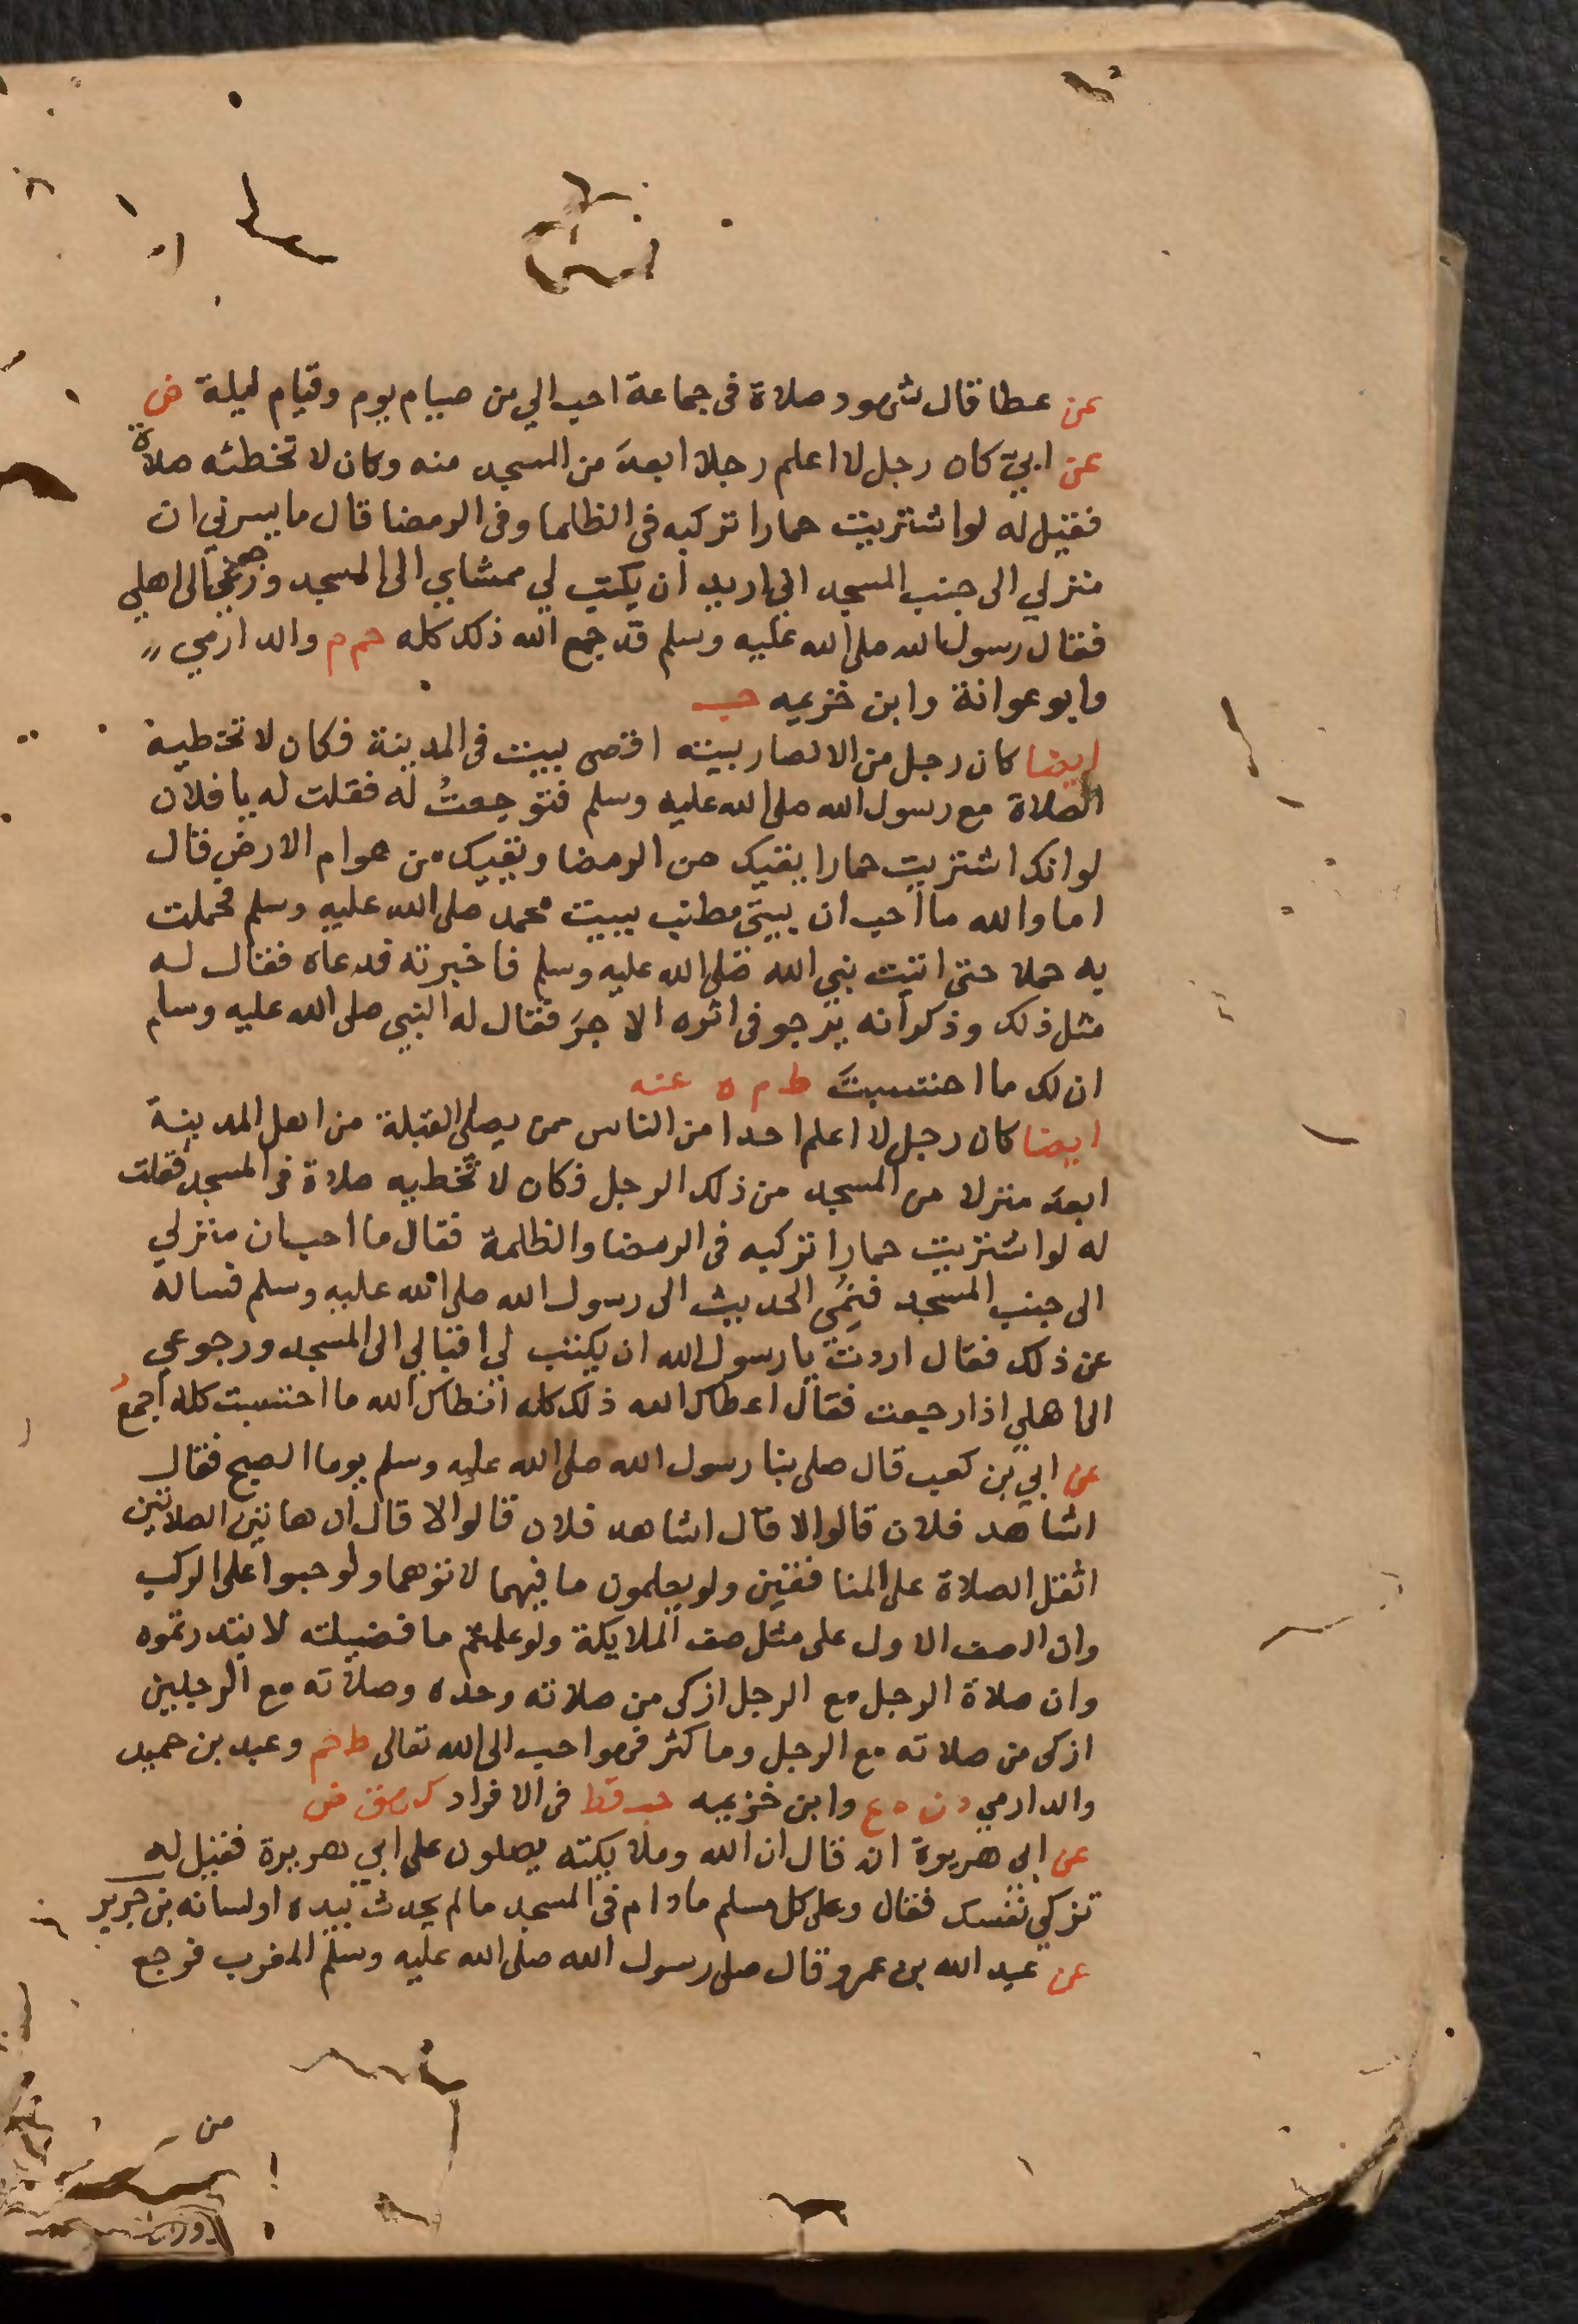 عن عطا قال شهود صلاة فى جماعة احب الي من صيام يوم وقيام ليلة ض
عن ابيّ كان رجل لا اعلم رجلا ابعدَ من المسجد منه وكان لا تخطئه صلاة
فقيل له لو اشتريت حمارا تركبه فى الظلما وفى الرمضا قال ما يسرني ان
منزلي الى جنب المسجد اني اريد ان يكتب لي ممشاي الى المسجد ورجوعي الى اهلي
فقال رسول الله صلى الله عليه وسلم قد جمع الله ذلك كله حم م والدارمي
وابو عوانة وابن خزيمه حب
ايضا كان رجل من الانصار بيته اقصى بيت فى المدينة فكان لا تخطيه
الصلاة مع رسول الله صلى الله عليه وسلم فتوجعتُ له فقلت له يا فلان
لو انك اشتريت حمارا يقيك من الرمضا ويقيك من هوام الارض قال
اما والله ما احب ان بيتى مطنب ببيت محمد صلى الله عليه وسلم فحملت
به حملا حتى اتيت نبي الله صلى الله عليه وسلم فاخبرته فدعاه فقال له
مثل ذلك وذكر انه يرجو فى اثره الاجرَ فقال له النبي صلى الله عليه وسلم
ان لك ما احتسبتَ ط م ه عنه
ايضا كان رجل لا اعلم احدا من الناس ممن يصلى القبلة من اهل المدينة
ابعدَ منزلا من المسجد من ذلك الرجل فكان لا تخطيه صلاة فى المسجد فقلت
له لو اشتريت حمارا تركبه فى الرمضا والظلمة فقال ما احب ان منزلي
الى جنب المسجد فنمي الحديث الى رسول الله صلى الله عليه وسلم فساله
عن ذلك فقال اردت يا رسول الله ان يكتب لي اقبالي الى المسجد ورجوعي
الى اهلي اذا رجعت فقال اعطاك الله ذلك كله انطاك الله ما احتسبت كله اجمعُ
عن ابي بن كعب قال صلى بنا رسول الله صلى الله عليه وسلم يوما الصبح فقال
اشاهد فلان قالوا لا قال اشاهد فلان قالوا لا قال ان هاتين الصلاتين
اثقل الصلاة على المنافقين ولو يعلمون ما فيهما لاتوهما ولو حبوا على الركب
وان الصف الاول على مثل صف الملايكة ولو علمتم ما فضيلته لابتدرتموه
وان صلاة الرجل مع الرجل ازكى من صلاته وحده وصلاته مع الرجلين
ازكى من صلاته مع الرجل وما كثر فهو احب الى الله تعالى ط حم وعبد بن حميد
والدارمي د ن ه ع وابن خزيمه حب قط فى الافراد ك هق ض
عن ابي هريرة انه قال ان الله وملايكته يصلون على ابي هريرة فقيل له
تزكي نفسك فقال وعلى كل مسلم ما دام فى المسجد ما لم يحدث بيده او لسانه بن جرير
عن عبد الله بن عمرو قال صلى رسول الله صلى الله عليه وسلم المغرب فرجع
من